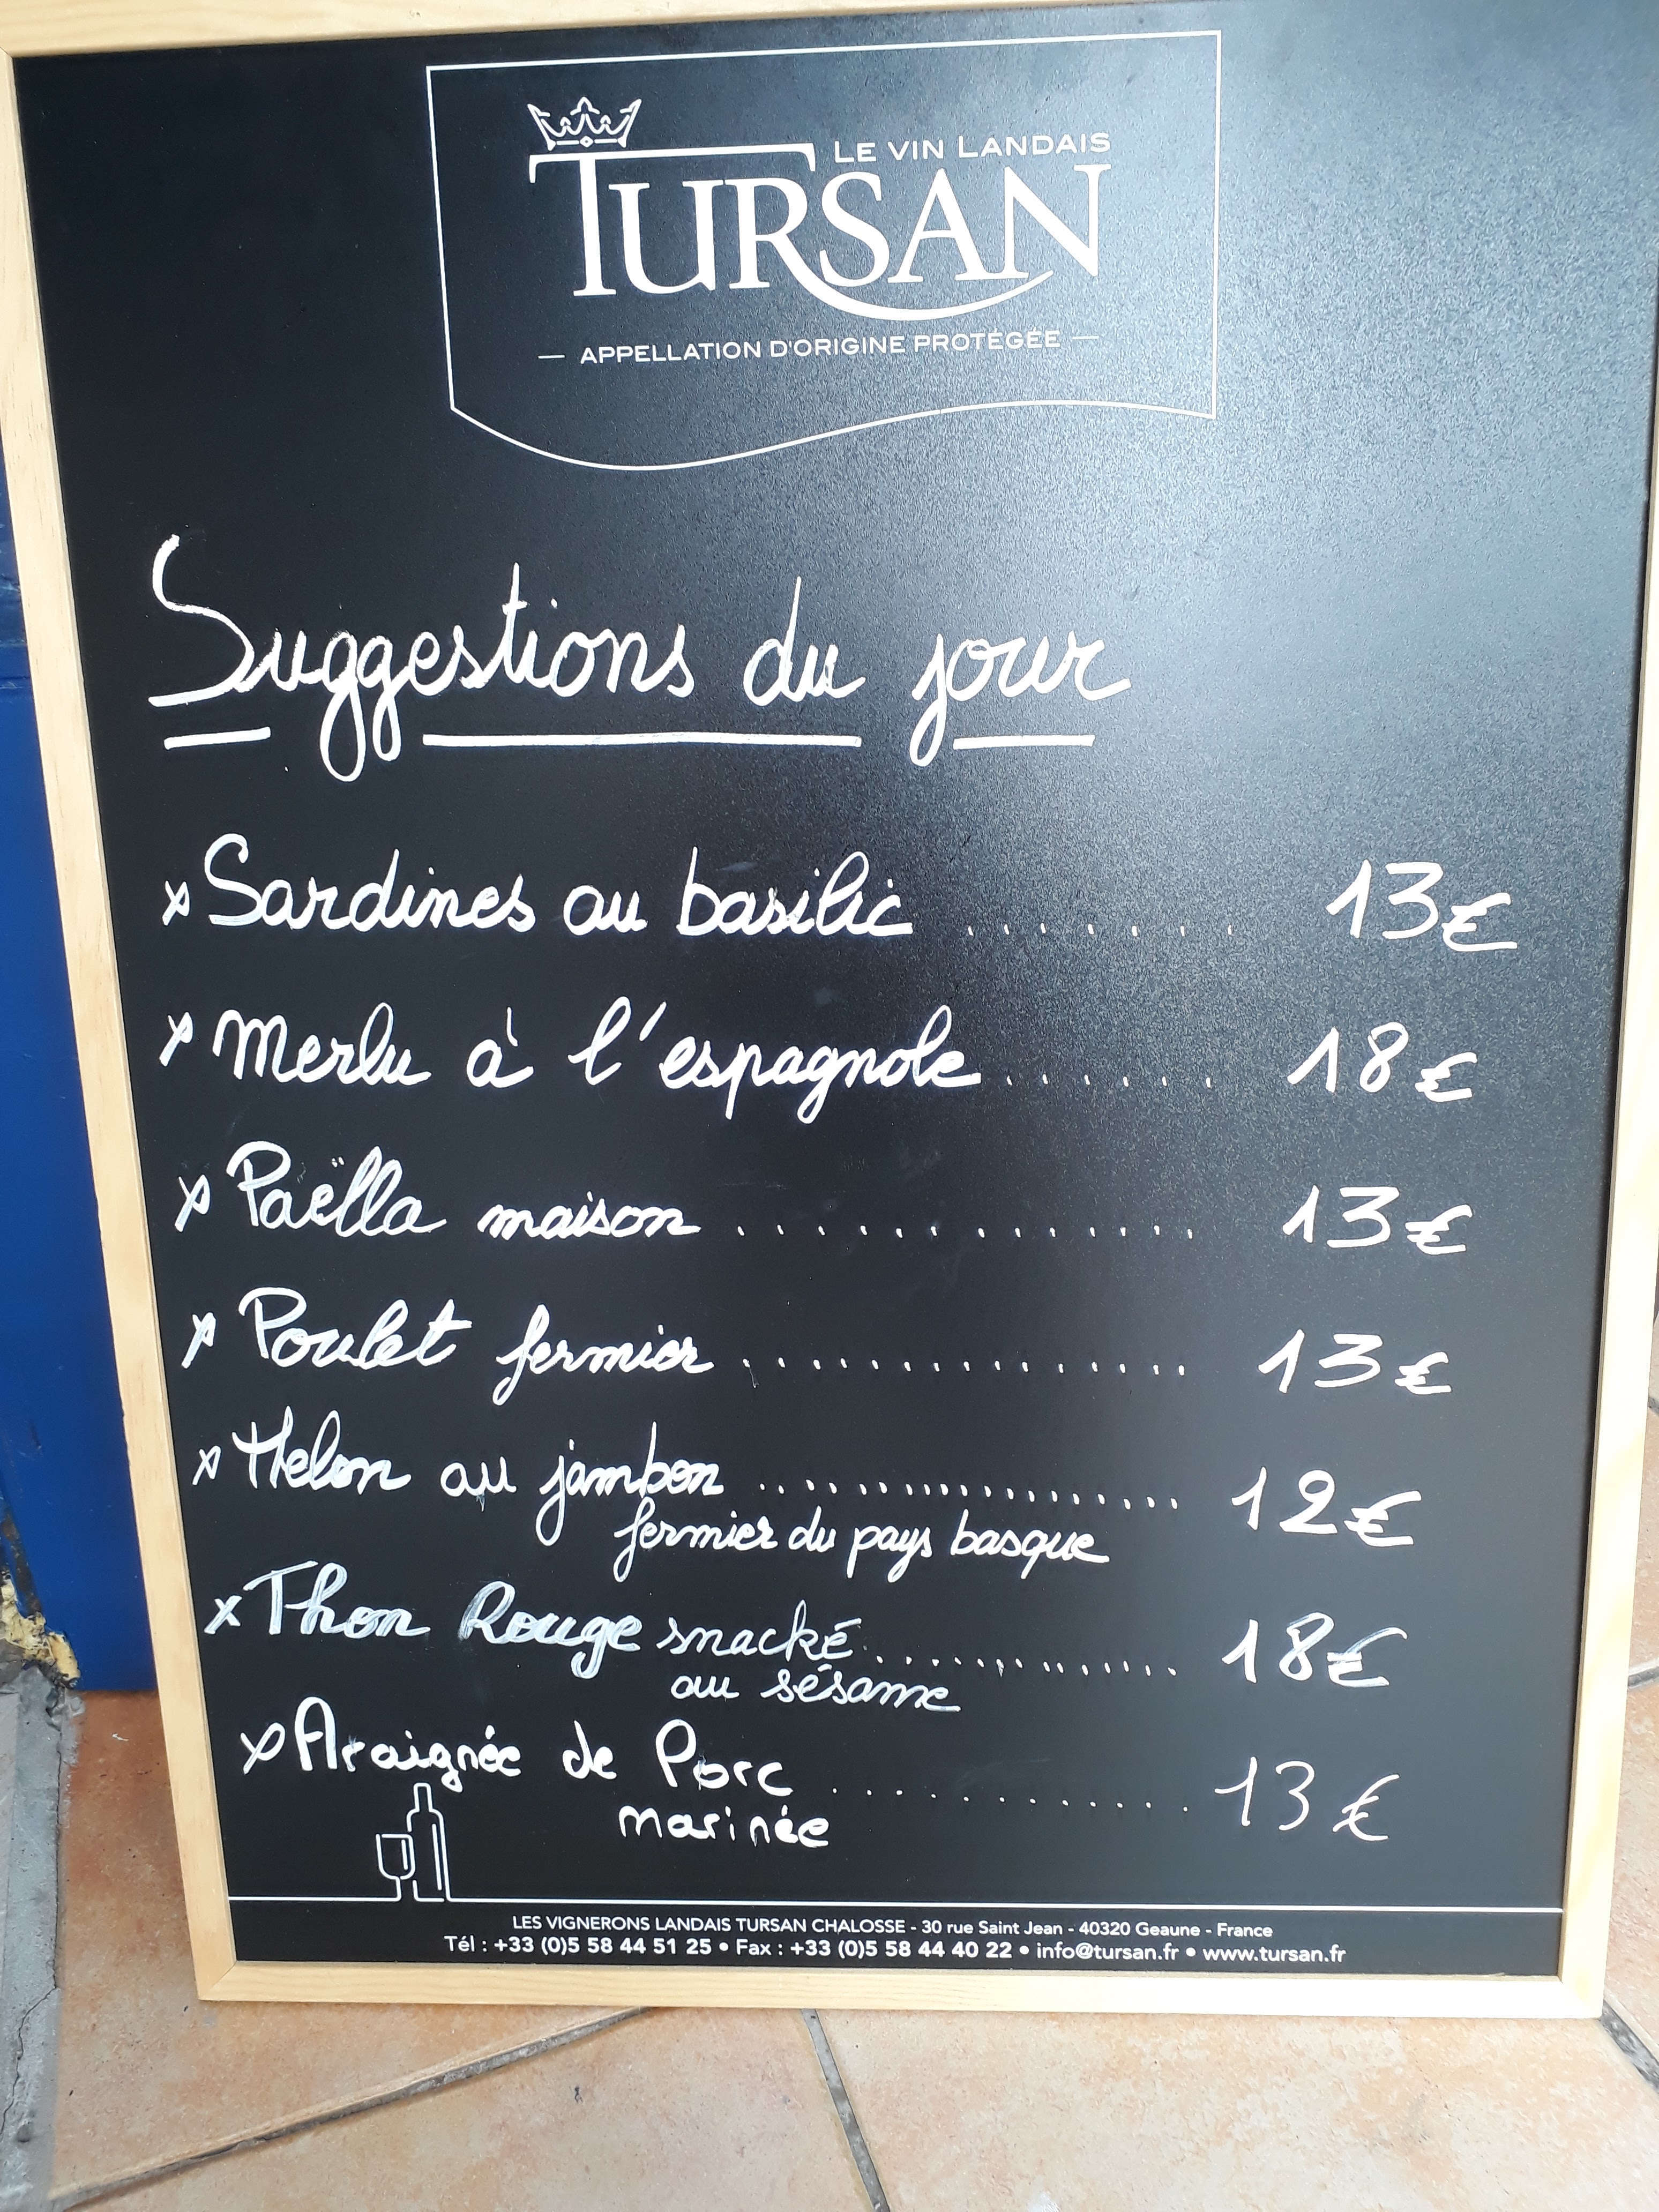 LE VIN LANDAIS
TURSAN
— APPELLATION D'ORIGINE PROTÉGÉE —
Suggestions du jour
x Sardines au basilic ........ 13€
x Merlu à l'espagnole ...... 18€
x Paëlla maison ............ 13€
x Poulet fermier ............... 13€
x Melon au jambon .................. 12€
fermier du pays basque
x Thon Rouge snacké ............. 18€
au sésame
x Araignée de Porc ........... 13€
marinée
LES VIGNERONS LANDAIS TURSAN CHALOSSE - 30 rue Saint Jean - 40320 Geaune - France
Tél : +33 (0)5 58 44 51 25 • Fax : +33 (0)5 58 44 40 22 • info@tursan.fr • www.tursan.fr